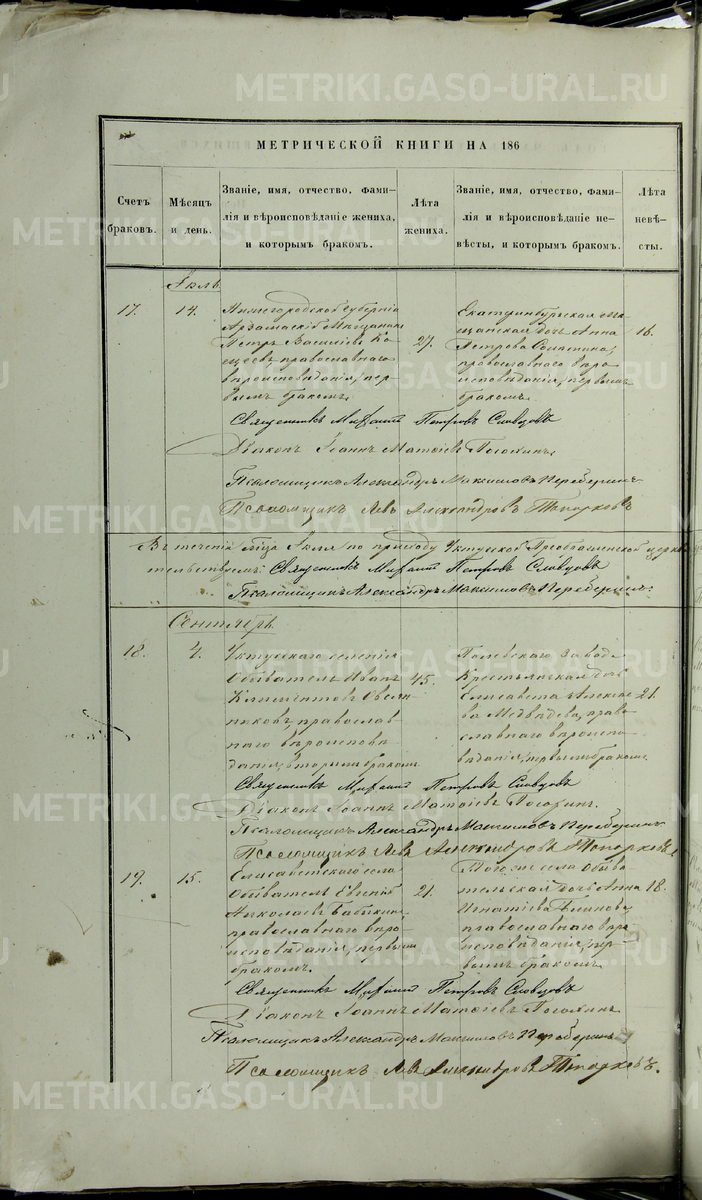 METRIKI.GASO-URAL.RU
МЕТРИЧЕСКОЙ КНИГИ НА 186
Счетъ браковъ.
Мѣсяцъ и день.
Званіе, имя, отчество, фами-
лія и вѣроисповѣданіе жениха,
и которымъ бракомъ.
Лѣта жениха.
Званіе, имя, отчество, фами-
лія и вѣроисповѣданіе не-
вѣсты, и которымъ бракомъ.
Лѣта невѣ-
сты.
Іюль
17.
14.
Нижегородской губерніи
Арзамаскій Мѣщанинъ
Петръ Василіевъ
православнаго
вѣроисповѣданія, пер-
вымъ бракомъ.
27.
Екатеринбургская мѣ-
щанская дочь Анна
Петрова
православнаго вѣро
исповѣданія, первымъ
бракомъ.
16.
Священникъ Михаилъ Петровъ Словцовъ
Діаконъ Іоаннъ Матѳіевъ
Псаломщикъ Александръ Максимовъ
Псаломщикъ Левъ Александровъ Топорковъ
Въ теченіи Іюля по приходу Уктусской Преображенской церкви
тельствуемъ: Священникъ Михаилъ Петровъ Словцовъ
Псаломщикъ Александръ Максимовъ
Сентябрь
18.
4.
Уктусскаго селенія
Обыватель Иванъ
Климентовъ Овсян-
никовъ, православ-
наго вѣроисповѣ-
данія, вторымъ бракомъ
45.
Полевскаго завода
Крестьянская дочь
Елисавета Алексѣе
ва Медвѣдева, право
славнаго вѣроиспо-
вѣданія, первымъ бракомъ
21.
Священникъ Михаилъ Петровъ Словцовъ
Діаконъ Іоаннъ Матѳіевъ
Псаломщикъ Александръ Максимовъ
Псаломщикъ Левъ Александровъ Топорковъ
19.
15.
Елисаветскаго села
Обыватель Евгеній
Николаевъ Бабкинъ
православнаго вѣро-
исповѣданія, первымъ
бракомъ.
21.
Того же села обыва
тельской дочь Анна
Игнатіева
православнаго вѣро
исповѣданія, пер-
вымъ бракомъ
18.
Священникъ Михаилъ Петровъ Словцовъ
Діаконъ Іоаннъ Матѳіевъ
Псаломщикъ Александръ Максимовъ
Псаломщикъ Левъ Александровъ Топорковъ.